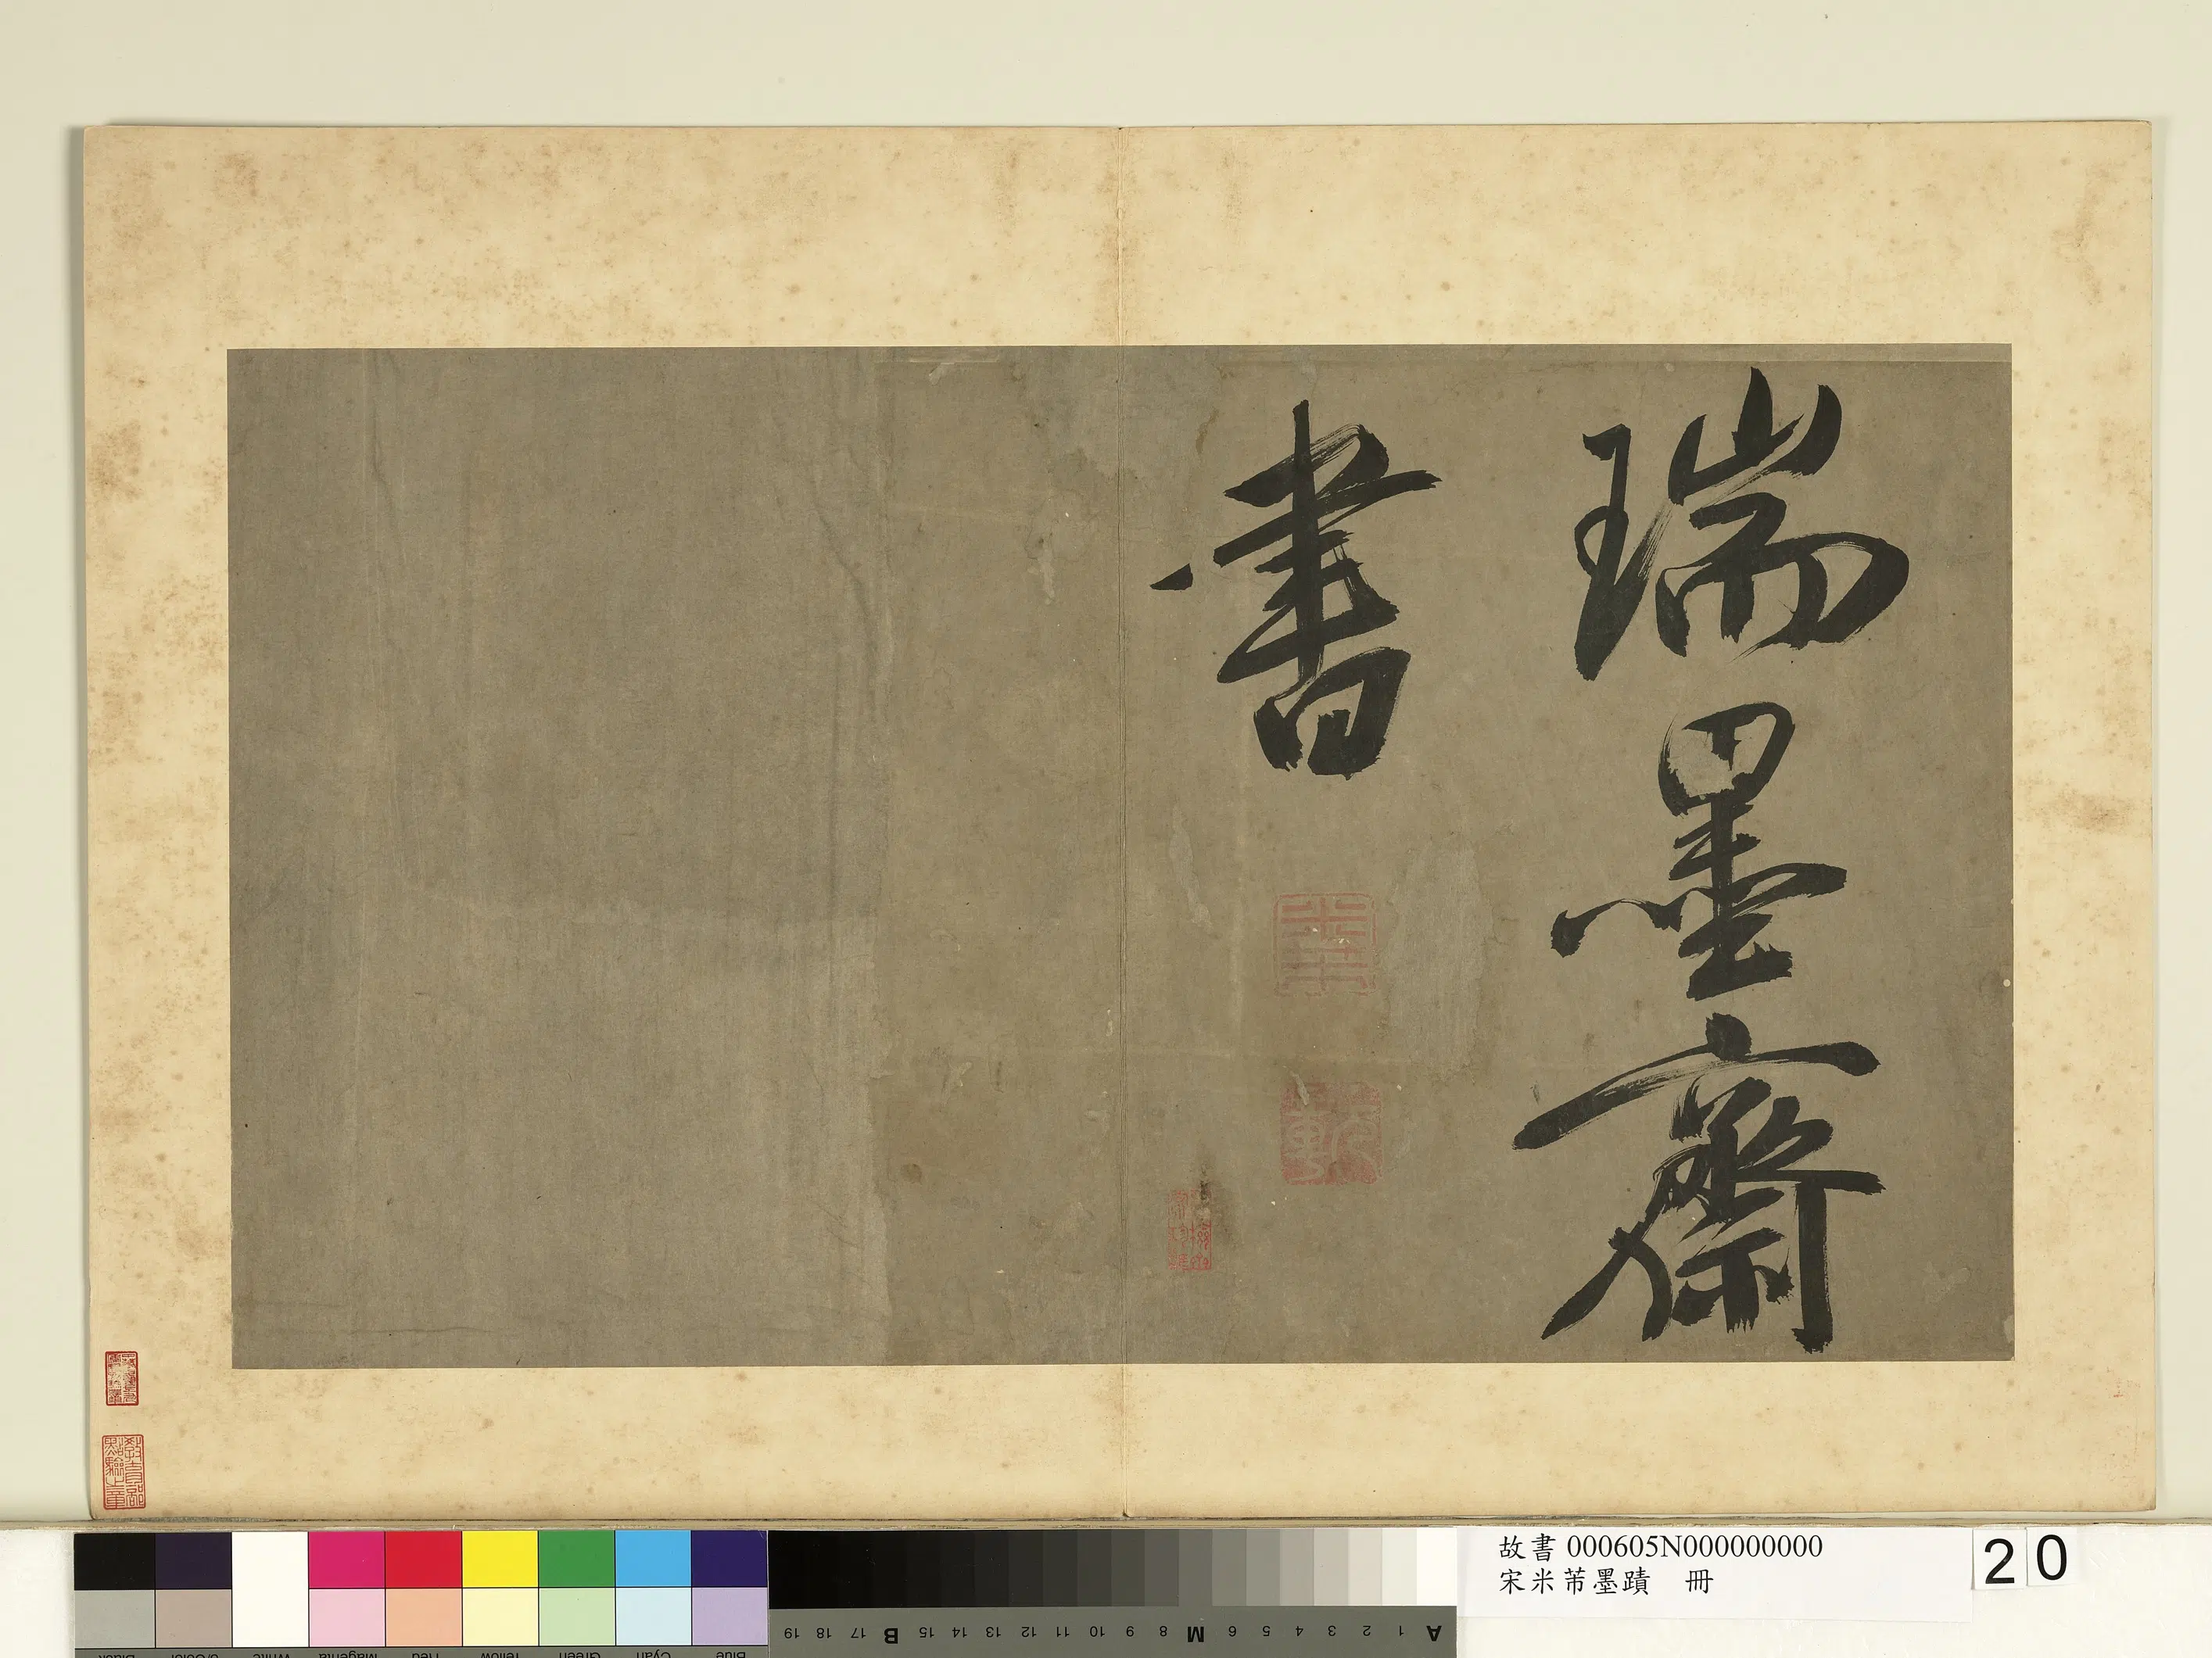 瑞墨齋
書
教育部
點驗之章
故書 000605N000000000
宋米芾墨蹟 冊
20
A 1 2 3 4 5 6 M 8 9 10 11 12 13 14 15 B 17 18 19
Blue Cyan Green Yellow Red Magenta White 3/Color Black